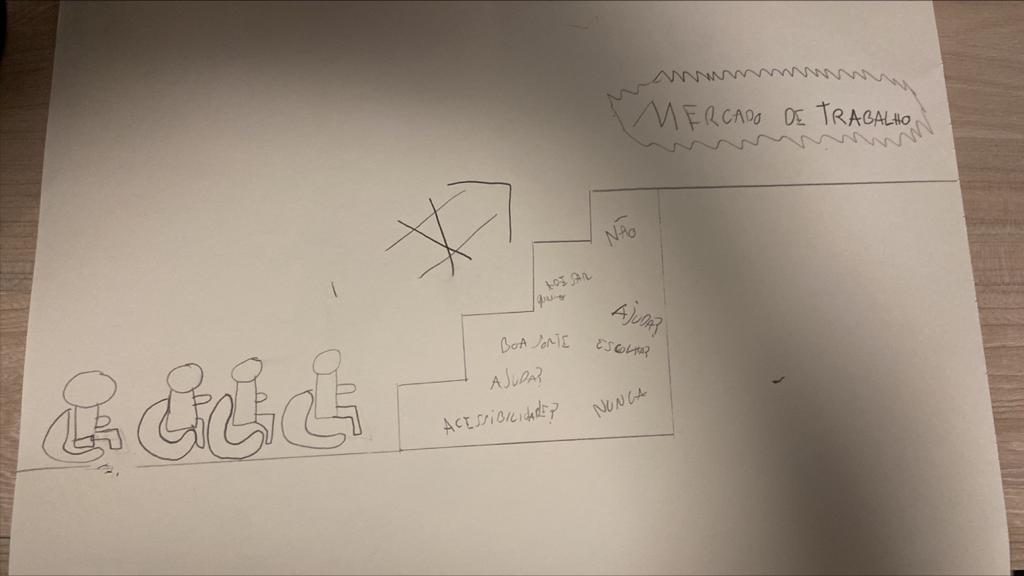 MERCADO DE TRABALHO
NÃO
AJUDA?
BOA SORTE
ESCOLHA?
AJUDA?
ACESSIBILIDADE?
NUNCA